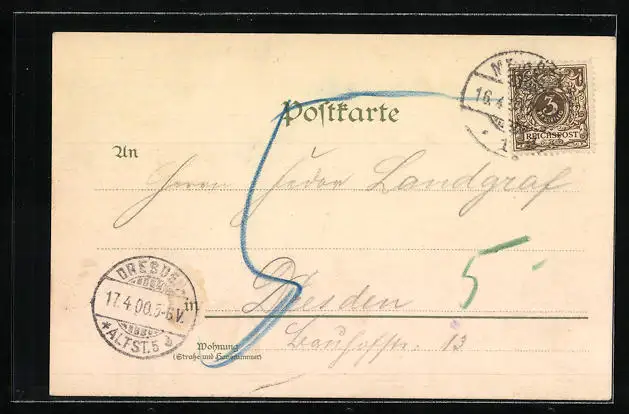 Postkarte
3
REICHSPOST
16.4
1
An
Herrn Landgraf
5
DRESDEN
17.4.00.5-6V.
*ALTST.5
in Dresden
Wohnung
(Straße und Hausnummer)
13